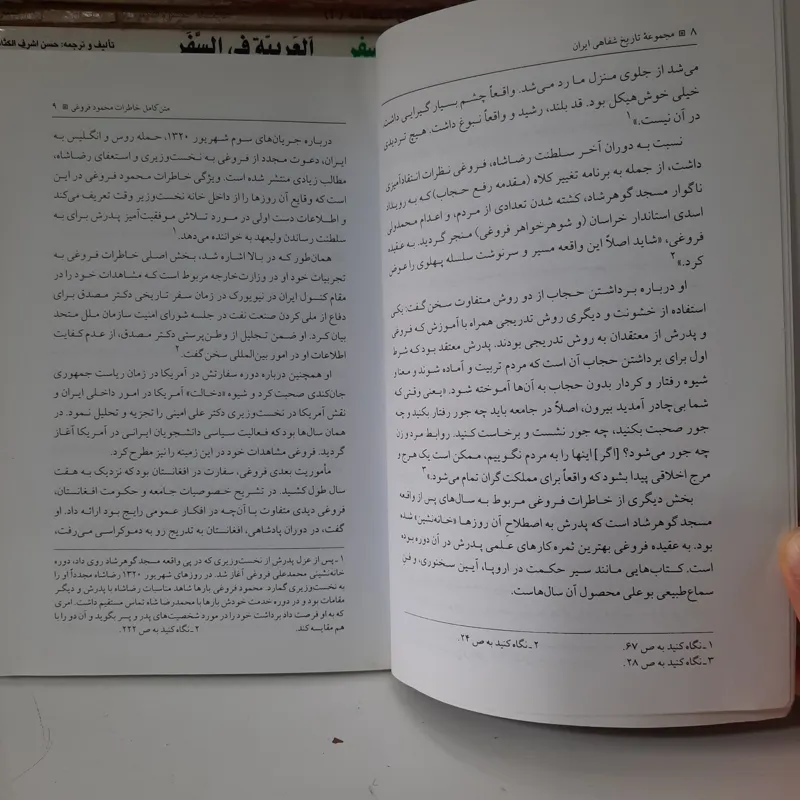 تألیف و ترجمه: حسن اشرف الکتا
اَلعَرَبیّة فی السَّفَر
سفر
۸ ▣ مجموعهٔ تاریخ شفاهی ایران
می‌شد از جلوی منزل ما رد می‌شد. واقعاً چشم بسیار گیرایی داشت.
خیلی خوش‌هیکل بود. قد بلند، رشید و واقعاً نبوغ داشت. هیچ تردیدی
در آن نیست.»۱
نسبت به دوران آخر سلطنت رضاشاه، فروغی نظرات انتقادآمیزی
داشت، از جمله به برنامه تغییر کلاه (مقدمه رفع حجاب) که به رویداد
ناگوار مسجد گوهرشاد، کشته شدن تعدادی از مردم، و اعدام محمدولی
اسدی استاندار خراسان (و شوهرخواهر فروغی) منجر گردید. به عقیده
فروغی، «شاید اصلاً این واقعه مسیر و سرنوشت سلسله پهلوی را عوض
کرد.»۲
او درباره برداشتن حجاب از دو روش متفاوت سخن گفت: یکی
استفاده از خشونت و دیگری روش تدریجی همراه با آموزش که فروغی
و پدرش از معتقدان به روش تدریجی بودند. پدرش معتقد بود که شرط
اول برای برداشتن حجاب آن است که مردم تربیت و آماده شوند و معنا و
شیوه رفتار و کردار بدون حجاب به آن‌ها آموخته شود. «یعنی وقتی که
شما بی‌چادر آمدید بیرون، اصلاً در جامعه باید چه جور رفتار بکنید و چه
جور صحبت بکنید، چه جور نشست و برخاست کنید. روابط مرد و زن
چه جور می‌شود؟ [اگر] اینها را به مردم نگوییم، ممکن است یک هرج و
مرج اخلاقی پیدا بشود که واقعاً برای مملکت گران تمام می‌شود.»۳
بخش دیگری از خاطرات فروغی مربوط به سال‌های پس از واقعه
مسجد گوهرشاد است که پدرش به اصطلاح آن روزها «خانه‌نشین» شده
بود. به عقیده فروغی بهترین ثمره کارهای علمی پدرش در آن دوره بوده
است. کتاب‌هایی مانند سیر حکمت در اروپا، آیین سخنوری، و فن
سماع طبیعی بوعلی محصول آن سال‌هاست.
۱ـ نگاه کنید به ص ۶۷. ۲ـ نگاه کنید به ص ۲۴.
۳ـ نگاه کنید به ص ۲۸.
متن کامل خاطرات محمود فروغی ▣ ۹
درباره جریان‌های سوم شهریور ۱۳۲۰، حمله روس و انگلیس به
ایران، دعوت مجدد از فروغی به نخست‌وزیری و استعفای رضاشاه،
مطالب زیادی منتشر شده است. ویژگی خاطرات محمود فروغی در این
است که وقایع آن روزها را از داخل خانه نخست‌وزیر وقت تعریف می‌کند
و اطلاعات دست اولی در مورد تلاش موفقیت‌آمیز پدرش برای به
سلطنت رساندن ولیعهد به خواننده می‌دهد.۱
همان‌طور که در بالا اشاره شد، بخش اصلی خاطرات فروغی به
تجربیات خود او در وزارت‌خارجه مربوط است که مشاهدات خود را در
مقام کنسول ایران در نیویورک در زمان سفر تاریخی دکتر مصدق برای
دفاع از ملی کردن صنعت نفت در جلسه شورای امنیت سازمان ملل متحد
بیان کرد. او ضمن تجلیل از وطن‌پرستی دکتر مصدق، از عدم کفایت
اطلاعات او در امور بین‌المللی سخن گفت.۲
او همچنین درباره دوره سفارتش در آمریکا در زمان ریاست جمهوری
جان‌کندی صحبت کرد و شیوه «دخالت» آمریکا در امور داخلی ایران و
نقش آمریکا در نخست‌وزیری دکتر علی امینی را تجزیه و تحلیل نمود. در
همان سال‌ها بود که فعالیت سیاسی دانشجویان ایرانی در آمریکا آغاز
گردید. فروغی مشاهدات خود در این زمینه را نیز مطرح کرد.
مأموریت بعدی فروغی، سفارت در افغانستان بود که نزدیک به هفت
سال طول کشید. در تشریح خصوصیات جامعه و حکومت افغانستان،
فروغی دیدی متفاوت با آن‌چه در افکار عمومی رایج بود ارائه داد. او
گفت، در دوران پادشاهی، افغانستان به تدریج رو به دموکراسی می‌رفت،
۱ـ پس از عزل پدرش از نخست‌وزیری که در پی واقعه مسجد گوهرشاد روی داد، دوره
خانه‌نشینی محمدعلی فروغی آغاز شد. در روزهای شهریور ۱۳۲۰ رضاشاه مجدداً او را
به نخست‌وزیری گمارد. محمود فروغی بارها شاهد مناسبات رضاشاه با پدرش و دیگر
مقامات بود و در دوره خدمت خودش بارها با محمدرضا شاه تماس مستقیم داشت. امری
که به او فرصت داد برداشت خود را در مورد شخصیت‌های پدر و پسر بگوید و آن دو را با
هم مقایسه کند. ۲ـ نگاه کنید به ص ۲۲۲.